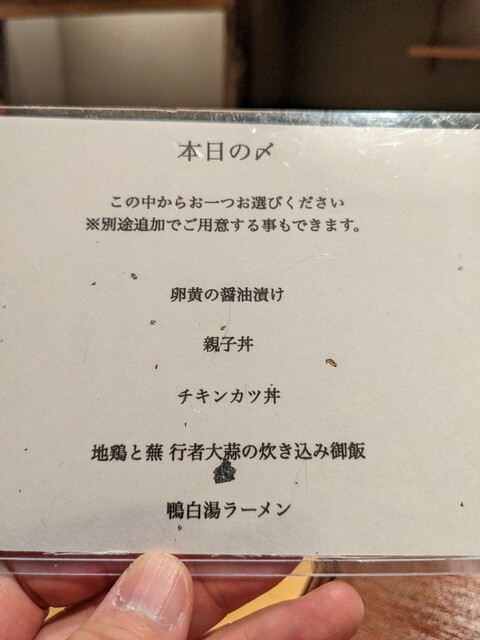 本日の〆
この中からお一つお選びください
※別途追加でご用意する事もできます。
卵黄の醤油漬け
親子丼
チキンカツ丼
地鶏と蕪 行者大蒜の炊き込み御飯
鴨白湯ラーメン